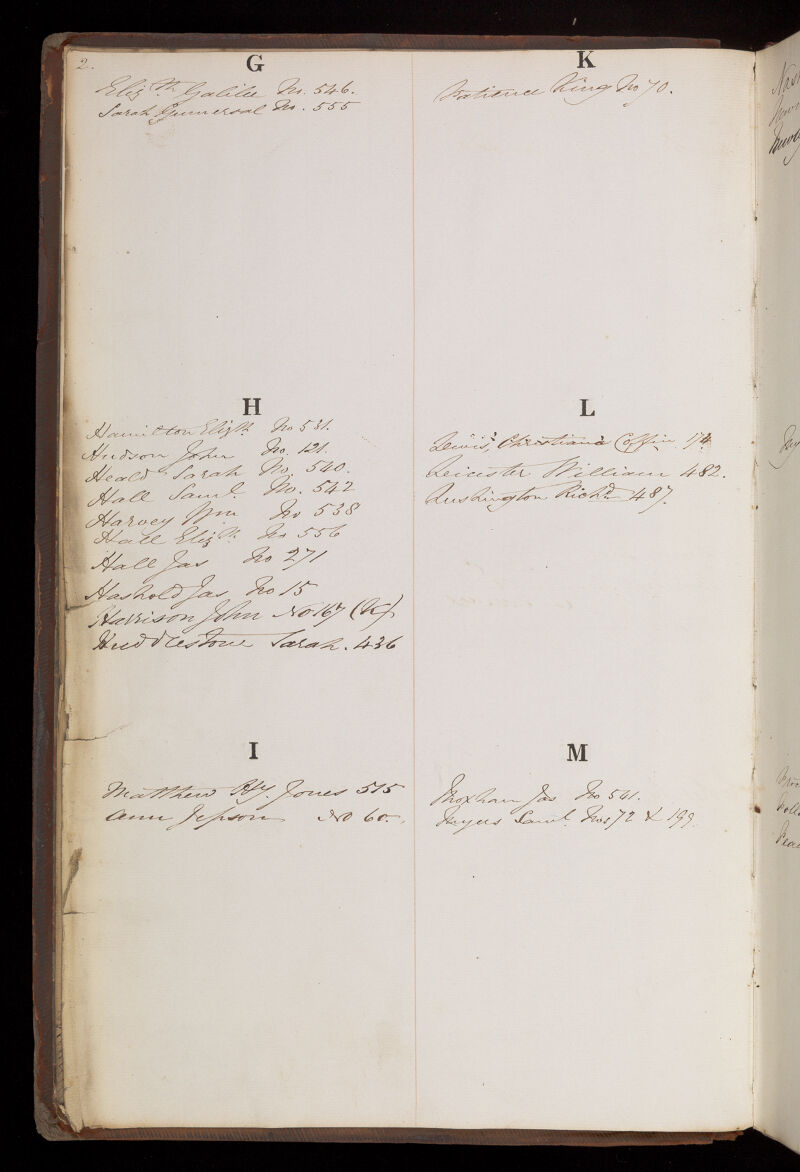 2.
G
Eliz.th Galilee No. 546.
Sarah Gummersal No. 555
H
Hamilton Eliz.th No 531.
Hudson John No. 121.
Heald Sarah No. 540.
Hall Saml. No. 542
Harvey Wm No 538
Hall Eliz.th No 556
Hall Jas No 271
Hashold Jas No 15
Harrison John No 167 (K)
Huddlestone Sarah. 436
I
Matthew Jones 515
Ann Jepson No 60.
K
Patience King No 70.
L
Lewis, Christiana Coffin 174
Leicester William 482.
Lushington Richd 487.
M
Moxham Jas No 541.
Mayers Saml. Nos 72 & 199.